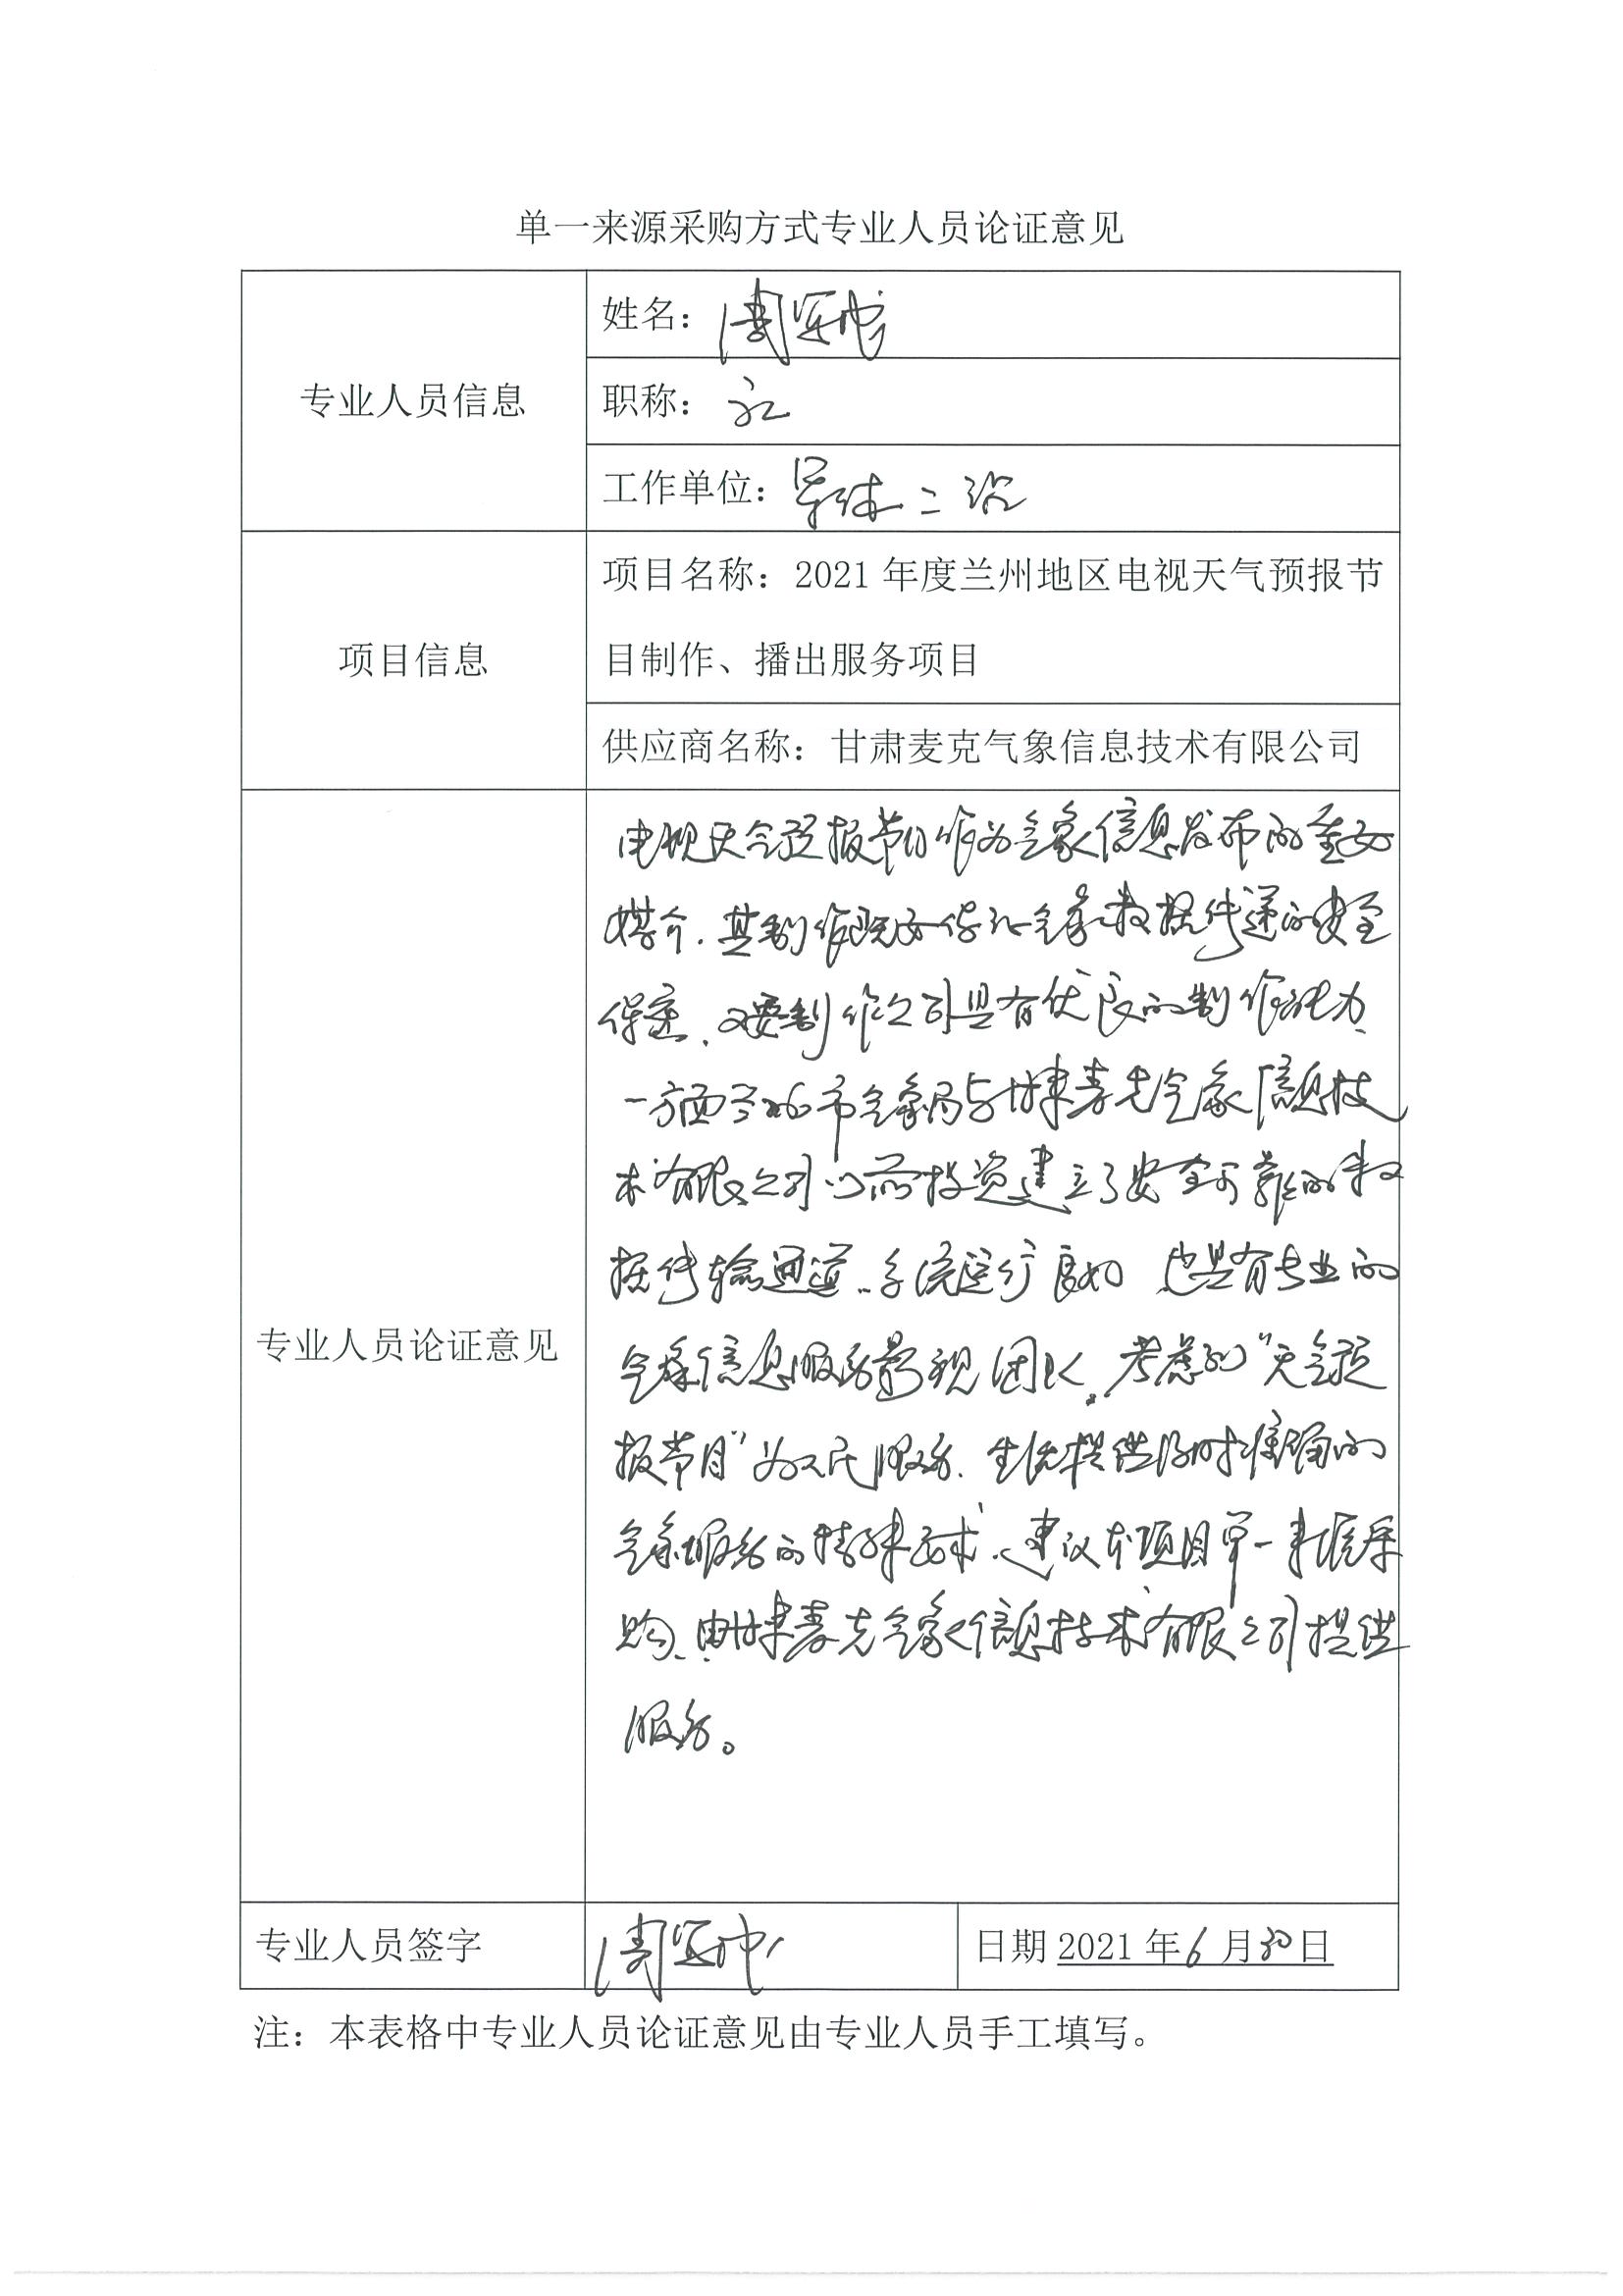 单一来源采购方式专业人员论证意见
专业人员信息
姓名：周
职称：
工作单位：
项目信息
项目名称：2021 年度兰州地区电视天气预报节
目制作、播出服务项目
供应商名称：甘肃麦克气象信息技术有限公司
专业人员论证意见
电视天气预报节目作为气象信息发布的重要
媒介，其制作既要保证气象数据传递的安全
保密，又要制作公司具有优良的制作能力。
一方面兰州市气象局与甘肃麦克气象信息技
术有限公司以前投资建立了安全可靠的数
据传输通道，系统运行良好，也具有专业的
气象信息服务影视团队。考虑到“天气预
报节目”为人民服务、生活提供及时准确的
气象服务的特殊要求，建议本项目单一来源采
购，由甘肃麦克气象信息技术有限公司提供
服务。
专业人员签字
周
日期 2021 年 6 月 30 日
注：本表格中专业人员论证意见由专业人员手工填写。